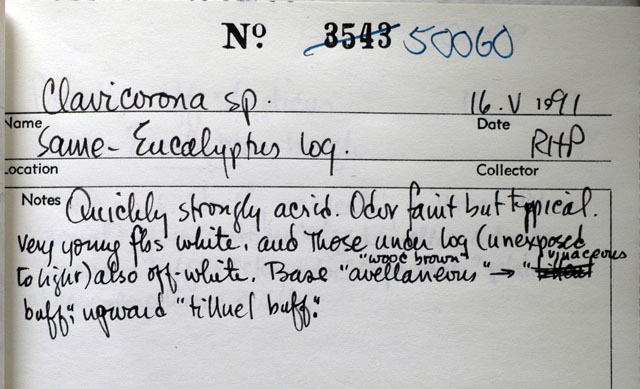 Nº 3543 50060
Clavicorona sp. 16.V 1991
Name Date
Same - Eucalyptus log. RHP
Location Collector
Notes Quickly strongly acrid. Odor faint but typical.
Very young fbs white, and those under log (unexposed
to light) also off-white. Base "avellaneous" → "vinaceous
"wood brown"
buff"; upward "tilluel buff."